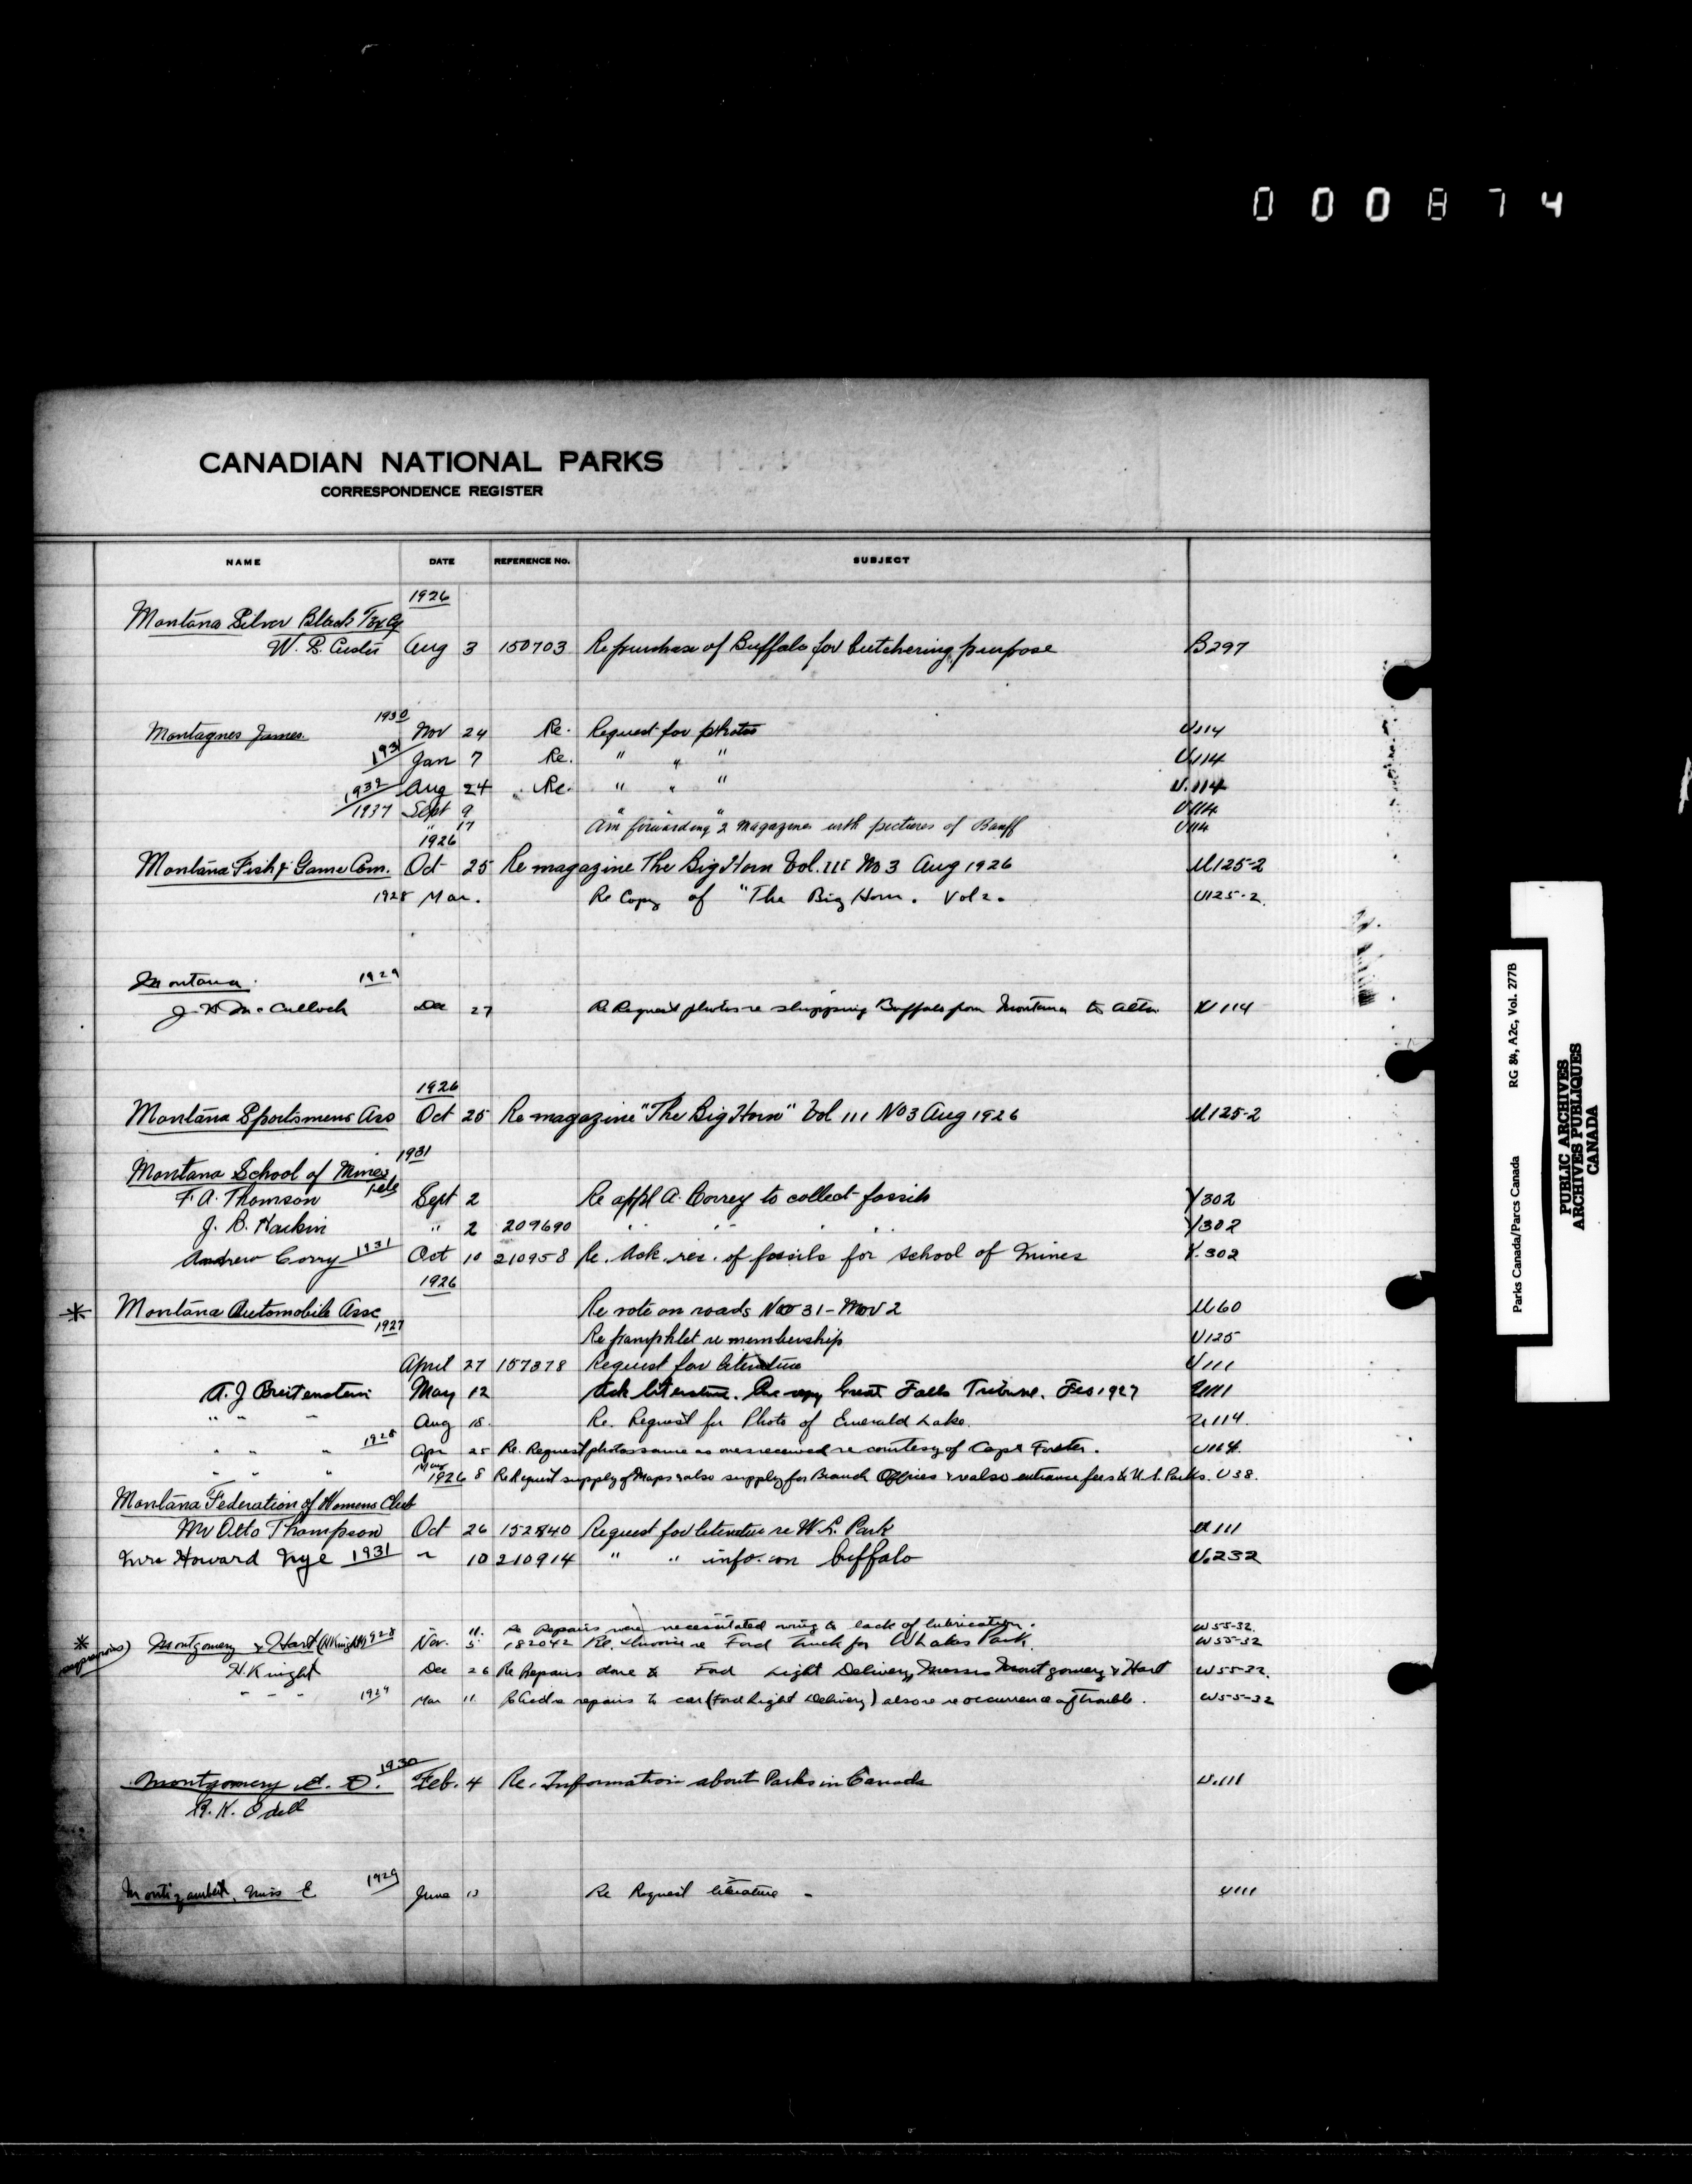 0 0 0 8 7 4
CANADIAN NATIONAL PARKS
CORRESPONDENCE REGISTER
NAME DATE REFERENCE No. SUBJECT
1926
Montana Silver Black Fox Co
W. R. Custer Aug 3 150703 Re purchase of Buffalo for butchering purpose B297
Montagnes James. 1930 Nov 24 Re. Request for photos U114
1931 Jan 7 Re. " " " U.114
1932 Aug 24 Re. " " " U.114
1937 Sept 9 " " U114
" 17 Am forwarding 2 magazines with pictures of Banff U114
1926
Montana Fish & Game Com. Oct 25 Re magazine The Big Horn Vol. III No 3 Aug 1926 U125-2
1928 Mar. Re Copy of "The Big Horn. Vol 2. U125-2.
Montana. 1929
J. H. McCulloch Dec 27 Re Request photos re shipping Buffalo from Montana to Alta. U114
1926
Montana Sportsmens Ass Oct 25 Re magazine "The Big Horn" Vol III No 3 Aug 1926 U125-2
1931
Montana School of Mines
F. A. Thomson Sept 2 Re appl A. Correy to collect fossils Y302
J. B. Harkin " 2 209690 " " " " Y302
Andrew Corry 1931 Oct 10 210958 Re. Ack. rec. of fossils for school of mines Y.302
1926
* Montana Automobile Assc Re vote on roads 31 - Nov 2 U60
1927 Re pamphlet re membership U125
April 27 157378 Request for literature U111
A. J. Breitenstein May 12 Ack literature. copy Great Falls Tribune. 1927 U111
" " " Aug 18. Re. Request for Photo of Emerald Lake. U114.
" " " 1928 Apr 25 Re. Request photos same as ones received re courtesy of Capt Foster. U114.
" " " May 8 Re Request supply of Maps & also supply for Branch Offices & re also entrance fees to U.S. Parks. U38.
1926
Montana Federation of Womens Club
Mr Otto Thompson Oct 26 152840 Request for literature re W.L. Park U111
Mrs Howard Nye 1931 " 10 210914 " " info. on buffalo U.232
11. Re Repairs were necessitated owing to lack of lubrication. W55-32
* Montgomery & Hart (H Knight) 1928 Nov. 5 182042 Re. re Ford Truck for W Lakes Park. W55-32
H. Knight Dec 26 Re Repairs done to Ford Light Delivery, Messrs Montgomery & Hart W55-32.
" " " 1929 Mar 11. repairs to car (Ford Light Delivery) also re reoccurrence of trouble. W55-32
Montgomery E. D. 1930 Feb. 4 Re. Information about Parks in Canada U.111
R. K. Odell
Montizambert, Miss E 1929 June 13 Re Request literature - U111
Parks Canada/Parcs Canada RG 84, A2c, Vol. 2778
PUBLIC ARCHIVES
ARCHIVES PUBLIQUES
CANADA